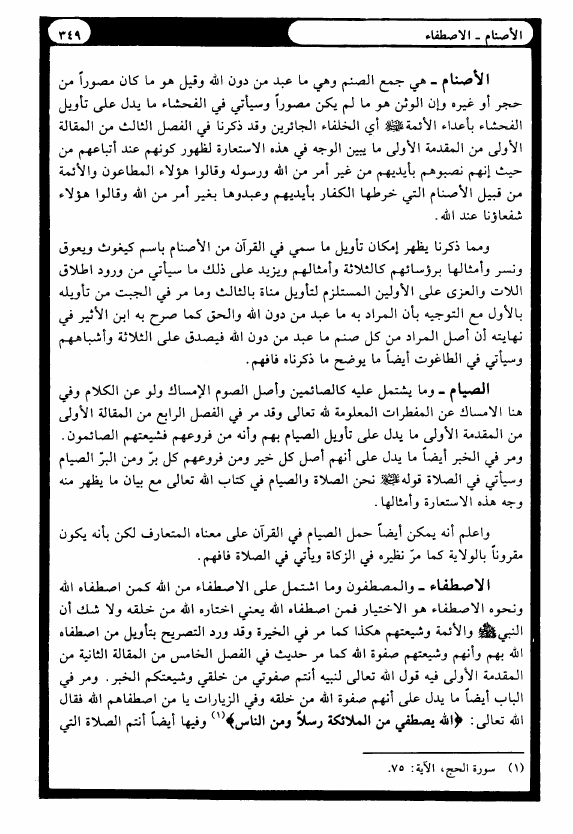 الأصنام ـ الاصطفاء
٣٤٩
الأصنام ـ هي جمع الصنم وهي ما عبد من دون الله وقيل هو ما كان مصوراً من
حجر أو غيره وإن الوثن هو ما لم يكن مصوراً وسيأتي في الفحشاء ما يدل على تأويل
الفحشاء بأعداء الأئمةﷺ أي الخلفاء الجائرين وقد ذكرنا في الفصل الثالث من المقالة
الأولى من المقدمة الأولى ما يبين الوجه في هذه الاستعارة لظهور كونهم عند أتباعهم من
حيث إنهم نصبوهم بأيديهم من غير أمر من الله ورسوله وقالوا هؤلاء المطاعون والأئمة
من قبيل الأصنام التي خرطها الكفار بأيديهم وعبدوها بغير أمر من الله وقالوا هؤلاء
شفعاؤنا عند الله.
ومما ذكرنا يظهر إمكان تأويل ما سمي في القرآن من الأصنام باسم كيغوث ويعوق
ونسر وأمثالها برؤسائهم كالثلاثة وأمثالهم ويزيد على ذلك ما سيأتي من ورود اطلاق
اللات والعزى على الأولين المستلزم لتأويل مناة بالثالث وما مر في الجبت من تأويله
بالأول مع التوجيه بأن المراد به ما عبد من دون الله والحق كما صرح به ابن الأثير في
نهايته أن أصل المراد من كل صنم ما عبد من دون الله فيصدق على الثلاثة وأشباههم
وسيأتي في الطاغوت أيضاً ما يوضح ما ذكرناه فافهم.
الصيام ـ وما يشتمل عليه كالصائمين وأصل الصوم الإمساك ولو عن الكلام وفي
هنا الامساك عن المفطرات المعلومة لله تعالى وقد مر في الفصل الرابع من المقالة الأولى
من المقدمة الأولى ما يدل على تأويل الصيام بهم وأنه من فروعهم فشيعتهم الصائمون.
ومر في الخبر أيضاً ما يدل على أنهم أصل كل خير ومن فروعهم كل برّ ومن البرّ الصيام
وسيأتي في الصلاة قولهﷺ نحن الصلاة والصيام في كتاب الله تعالى مع بيان ما يظهر منه
وجه هذه الاستعارة وأمثالها.
واعلم أنه يمكن أيضاً حمل الصيام في القرآن على معناه المتعارف لكن بأنه يكون
مقروناً بالولاية كما مرّ نظيره في الزكاة ويأتي في الصلاة فافهم.
الاصطفاء ـ والمصطفون وما اشتمل على الاصطفاء من الله كمن اصطفاه الله
ونحوه الاصطفاء هو الاختيار فمن اصطفاه الله يعني اختاره الله من خلقه ولا شك أن
النبيﷺ والأئمة وشيعتهم هكذا كما مر في الخيرة وقد ورد التصريح بتأويل من اصطفاه
الله بهم وأنهم وشيعتهم صفوة الله كما مر حديث في الفصل الخامس من المقالة الثانية من
المقدمة الأولى فيه قول الله تعالى لنبيه أنتم صفوتي من خلقي وشيعتكم الخبر. ومر في
الباب أيضاً ما يدل على أنهم صفوة الله من خلقه وفي الزيارات يا من اصطفاهم الله فقال
الله تعالى: ﴿الله يصطفي من الملائكة رسلاً ومن الناس﴾(١) وفيها أيضاً أنتم الصلاة التي
(١) سورة الحج، الآية: ٧٥.